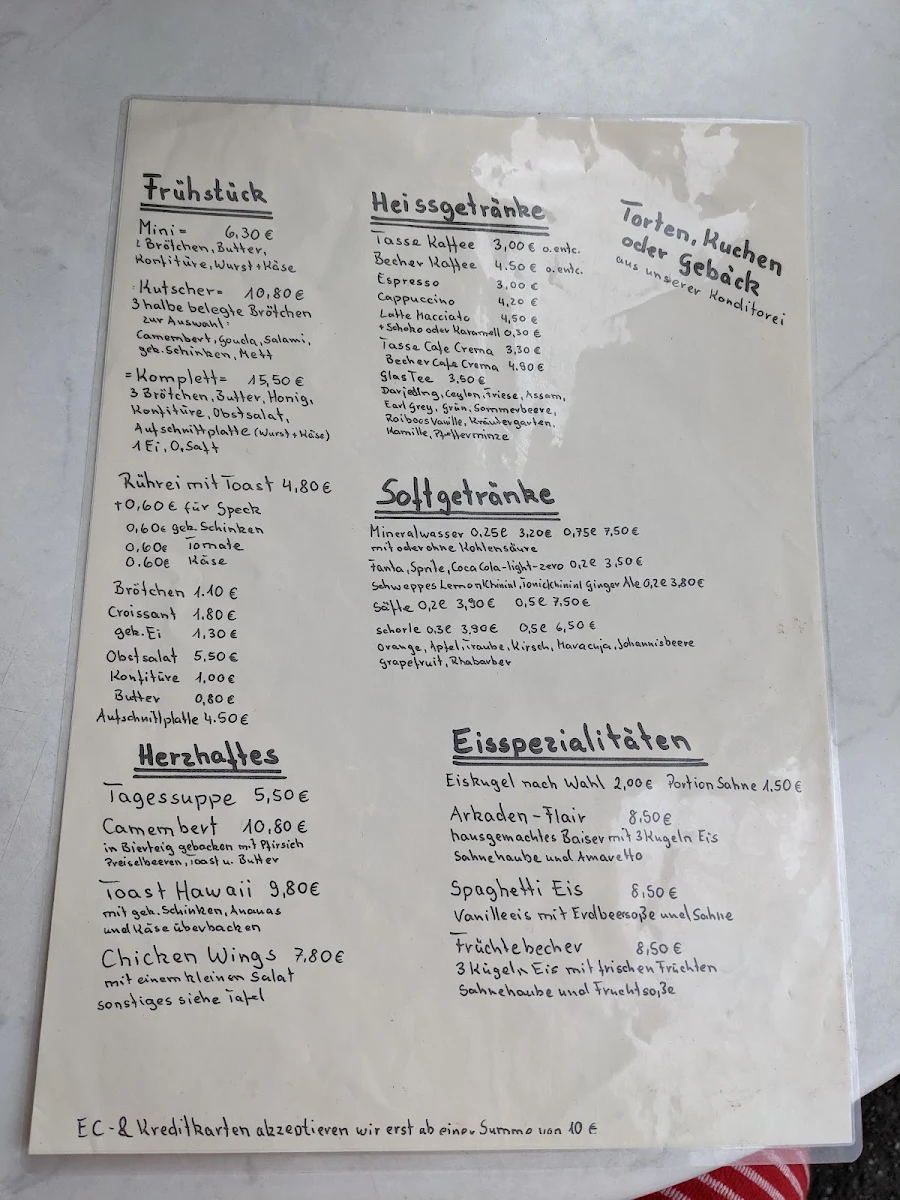 Frühstück
Mini= 6,30 €
2 Brötchen, Butter,
Konfitüre, Wurst + Käse
=Kutscher= 10,80 €
3 halbe belegte Brötchen
zur Auswahl:
Camembert, Gouda, Salami,
gek. Schinken, Mett
=Komplett= 15,50 €
3 Brötchen, Butter, Honig,
Konfitüre, Obstsalat,
Aufschnittplatte (Wurst + Käse)
1 Ei, O. Saft
Rührei mit Toast 4,80 €
+0,60 € für Speck
0,60 € gek. Schinken
0,60 € Tomate
0.60 € Käse
Brötchen 1.10 €
Croissant 1.80 €
gek. Ei 1,30 €
Obstsalat 5,50 €
Konfitüre 1,00 €
Butter 0,80 €
Aufschnittplatte 4.50 €
Herzhaftes
Tagessuppe 5,50 €
Camembert 10,80 €
in Bierteig gebacken mit Pfirsich
Preiselbeeren, Toast u. Butter
Toast Hawaii 9,80 €
mit gek. Schinken, Ananas
und Käse überbacken
Chicken Wings 7,80 €
mit einem kleinen Salat
sonstiges siehe Tafel
Heissgetränke
Tasse Kaffee 3,00 € o. entc.
Becher Kaffee 4.50 € o. entc.
Espresso 3,00 €
Cappuccino 4,20 €
Latte Macciato 4,50 €
+ Schoko oder Karamell 0,30 €
Tasse Cafe Crema 3,30 €
Becher Cafe Crema 4.80 €
Glas Tee 3,50 €
Darjeeling, Ceylon, Friese, Assam,
Earl Grey, Grün, Sommerbeere,
Roiboos Vanille, Kräutergarten,
Kamille, Pfefferminze
Torten, Kuchen
oder Gebäck
aus unserer Konditorei
Softgetränke
Mineralwasser 0,25l 3,20 € 0,75l 7,50 €
mit oder ohne Kohlensäure
Fanta, Sprite, Coca Cola-light-zero 0,2l 3,50 €
Schweppes Lemon(chinin), Tonic(chinin) Ginger Ale 0,2l 3,80 €
Säfte 0,2l 3,90 € 0,5l 7,50 €
Schorle 0,3l 3,90 € 0,5l 6,50 €
Orange, Apfel, Traube, Kirsch, Maracuja, Johannisbeere
Grapefruit, Rhabarber
Eisspezialitäten
Eiskugel nach Wahl 2,00 € Portion Sahne 1.50 €
Arkaden-Flair 8,50 €
hausgemachtes Baiser mit 3 Kugeln Eis
Sahnehaube und Amaretto
Spaghetti Eis 8,50 €
Vanilleeis mit Erdbeersoße und Sahne
Früchtebecher 8,50 €
3 Kugeln Eis mit frischen Früchten
Sahnehaube und Fruchtsoße
EC-& Kreditkarten akzeptieren wir erst ab einer Summe von 10 €